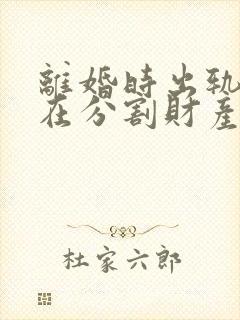 離婚時出軌
在分割財產
杜家六郎